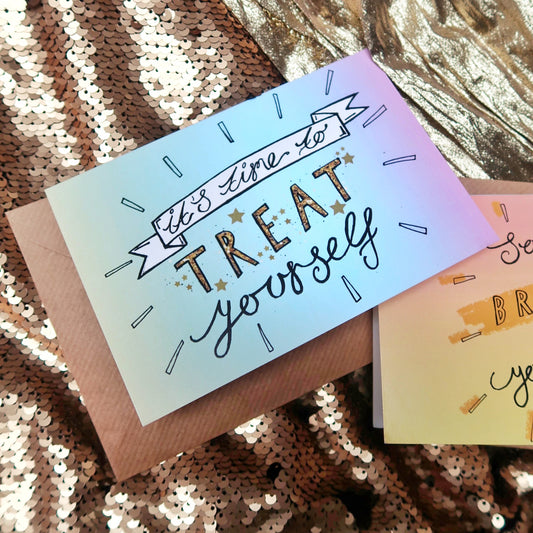 it's time to
TREAT
yourself